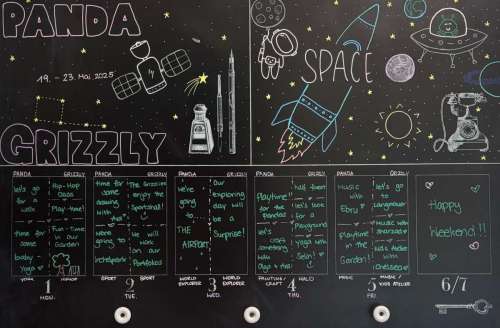 PANDA
19. - 23. Mai 2025
GRIZZLY
SPACE
PANDA GRIZZLY
let's go
for a
walk
time for
some
baby
Yoga ♡
Hip-Hop
Play-time!
Fun-Time
in our
Garden
YOGA HIPHOP
1
MON.
PANDA GRIZZLY
time for
some
dancing
with
The Grizzlies
enjoy the
Sportshall!
We're
going to
we will
work
on our
Portfolios
SPORT SPORT
2
TUE.
PANDA GRIZZLY
we're
going
to
THE
AIRPORT
our
exploring
day will
be a
Surprise!
WORLD EXPLORER WORLD EXPLORER
3
WED.
PANDA GRIZZLY
Playtime!!
for the
Pandas
let's
craft
something
with
Olga &
half of them
look for
a
Playground
yoga with
Selin!
PAINTING/CRAFT
4
THU.
PANDA GRIZZLY
Music
with
Ebru!
Playtime
in the
Garden!
let's go
to
Music with
kids atelier
with
MUSIC MUSIC/KIDS ATELIER
5
FRI
Happy
Weekend!!
6/7